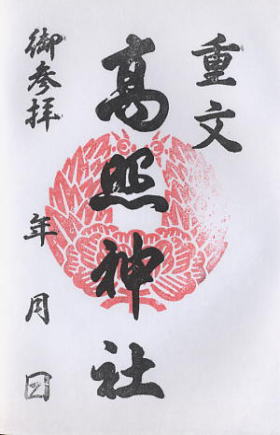 重文
高照神社
御参拝
年月日